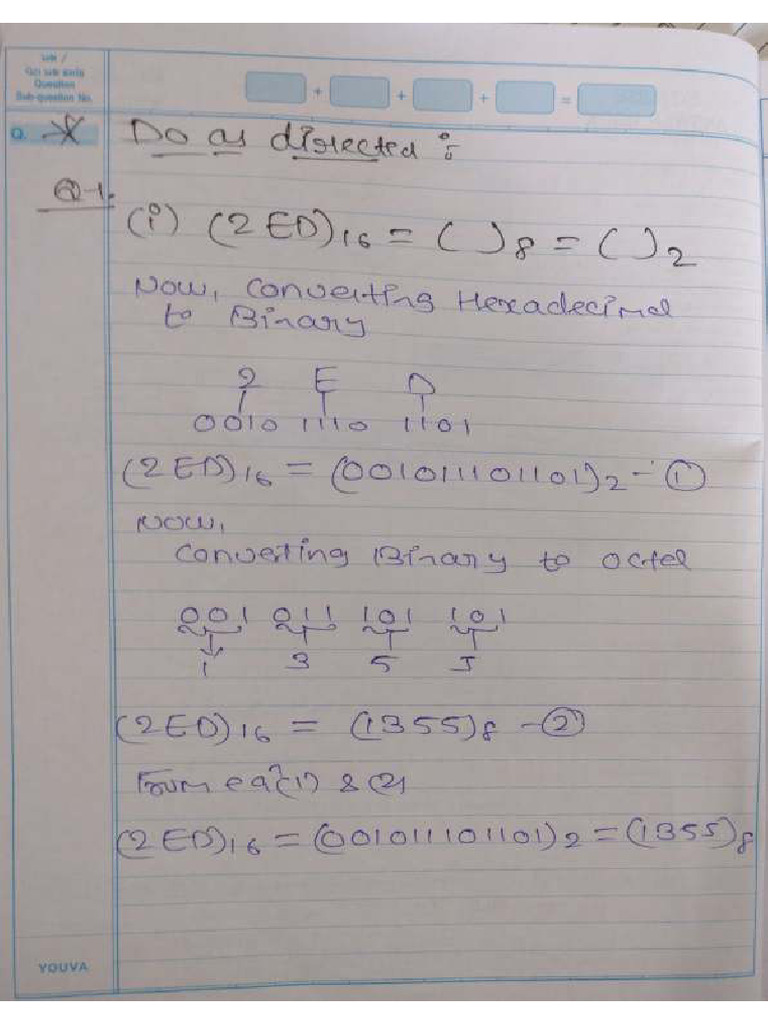 Question
Sub-question No.
+ + + =
Q. * Do as directed :
Q-1.
(i) (2ED)16 = ( )8 = ( )2
Now, Converting Hexadecimal
to Binary
2 E D
0010 1110 1101
(2ED)16 = (001011101101)2 - ①
Now,
Converting Binary to octel
001 011 101 101
1 3 5 5
(2ED)16 = (1355)8 - ②
From eqⁿ(1) & (2)
(2ED)16 = (001011101101)2 = (1355)8
YOUVA